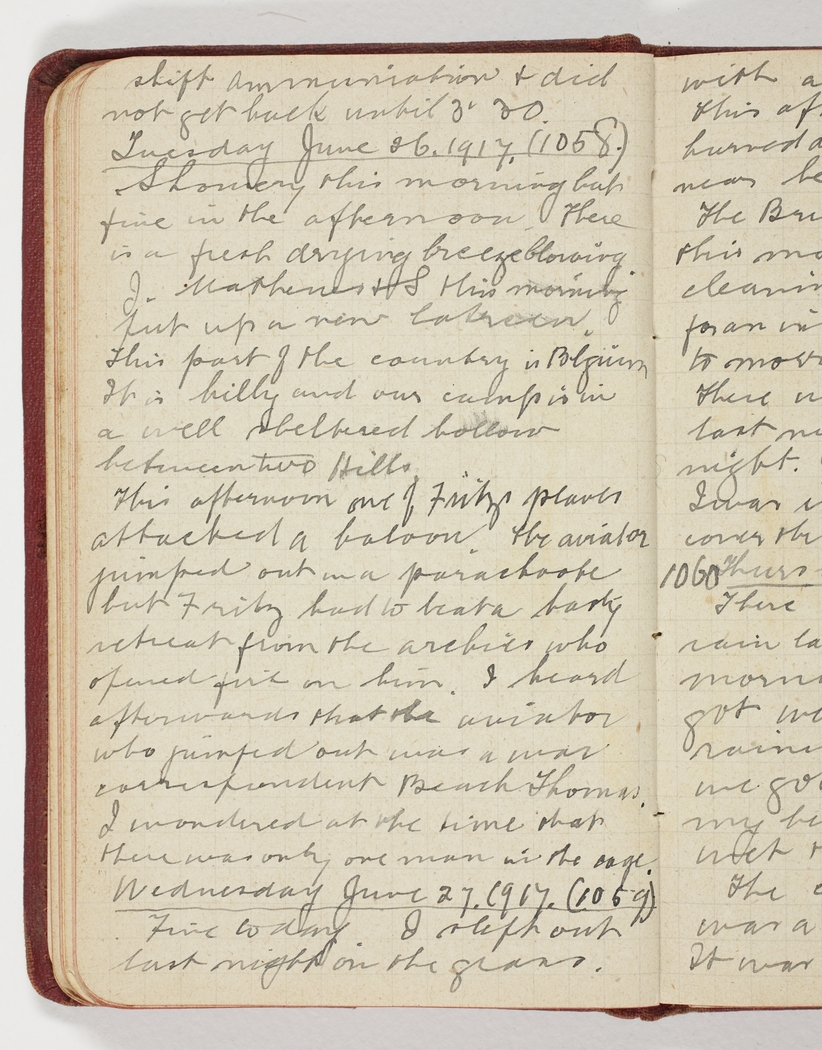 shift ammunition & did
not get back until 3' 30.
Tuesday June 26. 1917. (1058.)
Showery this morning but
fine in the afternoon. There
is a fresh drying breeze blowing
J. Mathews & S this morning
put up a new latreen.
This part of the country is Belgium
It is hilly and our camp is in
a well sheltered hollow
between two Hills
This afternoon one of Fritzs planes
attacked a baloon the aviator
jumped out in a parachoote
but Fritz had to beat a hasty
retreat from the archies who
opened fire on him. I heard
afterwards that the aviator
who jumped out was a war
correspondent Beach Thomas.
I wondered at the time that
there was only one man in the cage.
Wednesday June 27. 1917. (1059)
Fine today I slept out
last night on the grass.
with a
this af
hurved
near be
The Bri
this mo
cleanin
for an in
to morr
There w
last ni
night.
I was
cover the
1060 Thurs
There
rain la
morni
got we
raini
we got
my be
wet
The
was a
It was